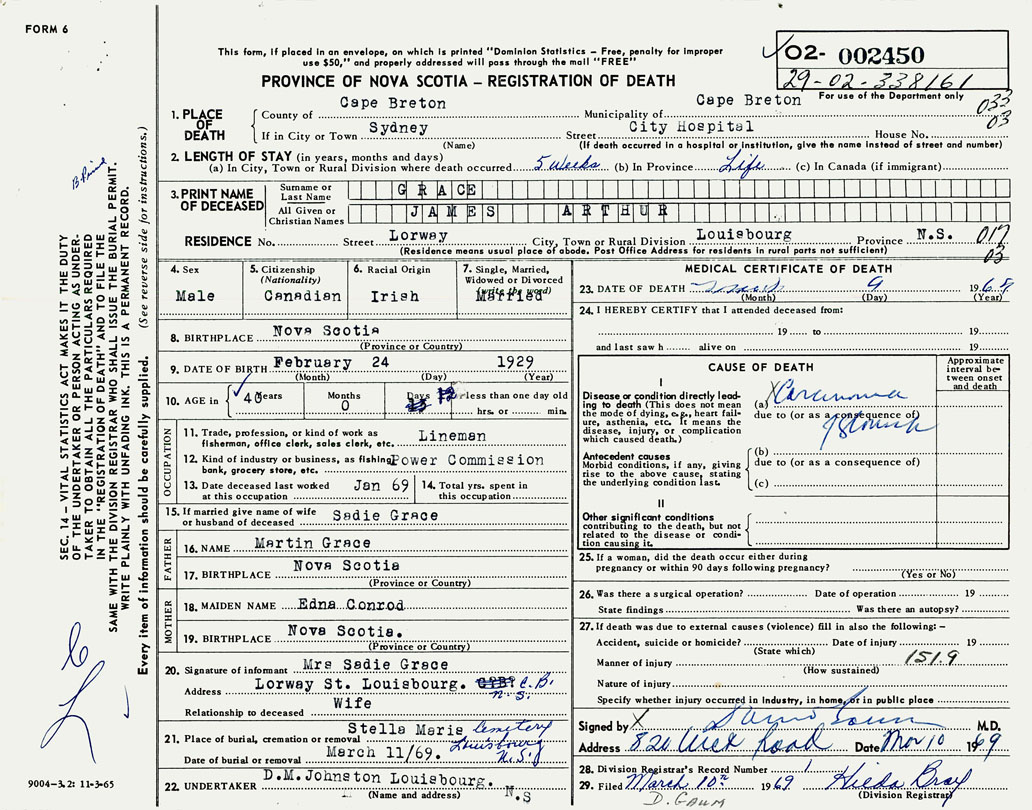 FORM 6
This form, if placed in an envelope, on which is printed "Dominion Statistics – Free, penalty for improper
use $50," and properly addressed will pass through the mail "FREE"
02- 002450
29-02-338161
For use of the Department only
PROVINCE OF NOVA SCOTIA – REGISTRATION OF DEATH
033
03
1. PLACE OF DEATH
County of Cape Breton Municipality of Cape Breton
If in City or Town Sydney Street City Hospital House No.
(Name) (If death occurred in a hospital or institution, give the name instead of street and number)
2. LENGTH OF STAY (in years, months and days)
(a) In City, Town or Rural Division where death occurred 5 weeks (b) In Province Life (c) In Canada (if immigrant)
3. PRINT NAME OF DECEASED
Surname or Last Name GRACE
All Given or Christian Names JAMES ARTHUR
RESIDENCE No. Street Lorway City, Town or Rural Division Louisbourg Province N.S.
(Residence means usual place of abode. Post Office Address for residents in rural parts not sufficient)
017
03
4. Sex
Male
5. Citizenship
(Nationality)
Canadian
6. Racial Origin
Irish
7. Single, Married,
Widowed or Divorced
(write the word)
Married
8. BIRTHPLACE Nova Scotia
(Province or Country)
9. DATE OF BIRTH February 24 1929
(Month) (Day) (Year)
10. AGE in 40 Years Months 0 Days If less than one day old
hrs. or min.
OCCUPATION
11. Trade, profession, or kind of work as
fisherman, office clerk, sales clerk, etc. Lineman
12. Kind of industry or business, as fishing,
bank, grocery store, etc. Power Commission
13. Date deceased last worked
at this occupation Jan 69
14. Total yrs. spent in
this occupation
15. If married give name of wife
or husband of deceased Sadie Grace
FATHER
16. NAME Martin Grace
17. BIRTHPLACE Nova Scotia
(Province or Country)
MOTHER
18. MAIDEN NAME Edna Conrod
19. BIRTHPLACE Nova Scotia.
(Province or Country)
20. Signature of informant Mrs Sadie Grace
Address Lorway St. Louisbourg. C.B.
N.S.
Relationship to deceased Wife
21. Place of burial, cremation or removal Stella Maris Cemetery
Louisbourg
N.S.
Date of burial or removal March 11/69.
22. UNDERTAKER D.M.Johnston Louisbourg.
(Name and address) N.S
MEDICAL CERTIFICATE OF DEATH
23. DATE OF DEATH 9 1969
(Month) (Day) (Year)
24. I HEREBY CERTIFY that I attended deceased from:
19 to 19
and last saw h alive on 19
CAUSE OF DEATH
Approximate
interval be-
tween onset
and death
I
Disease or condition directly lead-
ing to death (This does not mean
the mode of dying, e.g., heart fail-
ure, asthenia, etc. It means the
disease, injury, or complication
which caused death.)
(a) Carcinoma
due to (or as a consequence of)
Stomach
Antecedent causes
Morbid conditions, if any, giving
rise to the above cause, stating
the underlying condition last.
(b)
due to (or as a consequence of)
(c)
II
Other significant conditions
contributing to the death, but not
related to the disease or condi-
tion causing it.
25. If a woman, did the death occur either during
pregnancy or within 90 days following pregnancy?
(Yes or No)
26. Was there a surgical operation? Date of operation 19
State findings Was there an autopsy?
27. If death was due to external causes (violence) fill in also the following: –
Accident, suicide or homicide? Date of injury 19
(State which)
Manner of injury 151.9
(How sustained)
Nature of injury
Specify whether injury occurred in industry, in home, or in public place
Signed by M.D.
Address 820 Road Date Mar 10 1969
28. Division Registrar's Record Number 1
29. Filed March 10th 1969 Hilda Bray
(Division Registrar)
D. Gaum
SEC. 14 – VITAL STATISTICS ACT MAKES IT THE DUTY
OF THE UNDERTAKER OR PERSON ACTING AS UNDER-
TAKER TO OBTAIN ALL THE PARTICULARS REQUIRED
IN THE "REGISTRATION OF DEATH" AND TO FILE THE
SAME WITH THE DIVISION REGISTRAR WHO SHALL ISSUE THE BURIAL PERMIT.
WRITE PLAINLY WITH UNFADING INK. THIS IS A PERMANENT RECORD.
Every item of information should be carefully supplied. (See reverse side for instructions.)
9004-3.2: 11-3-65